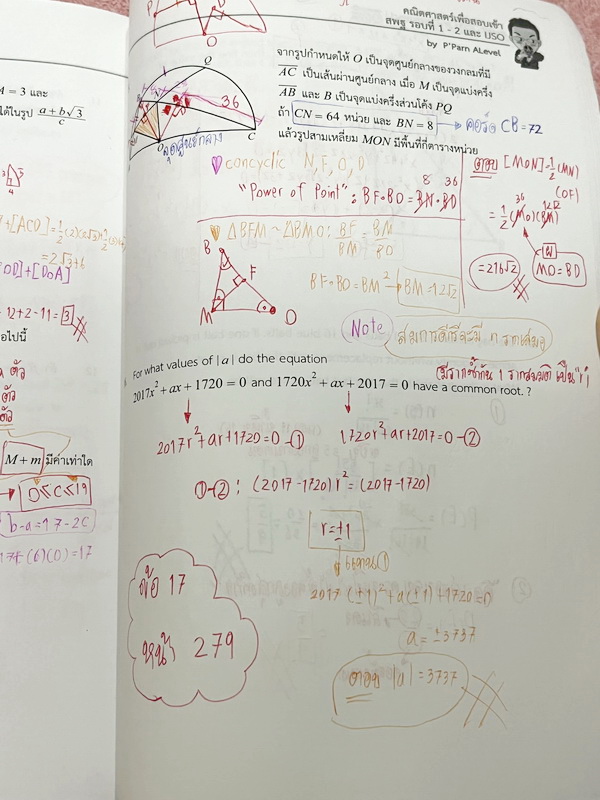 คณิตศาสตร์เพื่อสอบเข้า
สพฐ รอบที่ 1 - 2 และ IJSO
by P'Parn ALevel
จากรูปกำหนดให้ O เป็นจุดศูนย์กลางของวงกลมที่มี
AC เป็นเส้นผ่านศูนย์กลาง เมื่อ M เป็นจุดแบ่งครึ่ง
AB และ B เป็นจุดแบ่งครึ่งส่วนโค้ง PQ
ถ้า CN = 64 หน่วย และ BN = 8 → คอร์ด CB = 72
แล้วรูปสามเหลี่ยม MON มีพื้นที่กี่ตารางหน่วย
P
O
Q
36
C
O
จุดศูนย์กลาง
concyclic N, F, O, D
"Power of Point" : BF·BO = BN·BD
8 36
ΔBFM ~ ΔBMO : BF/BM = BM/BO
BF·BO = BM² → BM = 12√2
B
F
M
O
ตอบ [MON] = 1/2 (MN)
(OF)
= 1/2 (MO)(BM)
36 12√2
= 216√2
MO = BD
Note
สมการดีกรี n จะมี n รากเสมอ
(มีรากซ้ำกัน 1 รากสมมติ เป็น "r")
For what values of |a| do the equation
2017x² + ax + 1720 = 0 and 1720x² + ax + 2017 = 0 have a common root. ?
2017r² + ar + 1720 = 0 -①
1720r² + ar + 2017 = 0 -②
①-② : (2017-1720)r² = (2017-1720)
r = ±1
แทนใน ①
2017(±1)² + a(±1) + 1720 = 0
a = ±3737
ตอบ |a| = 3737
ข้อ 17
หน้า 279
M = 3 และ
ได้ในรูป a + b√3 / c
+[ACD] = 1/2
= 2√3 + 6
OD] + [DOA]
12 + 2 - 11 = 3
อไปนี้
ตัว
ตัว
ตัว
M + m มีค่าเท่าใด
0 ≤ c ≤ 19
b - a = 17 - 2c
17 + (6)(0) = 17